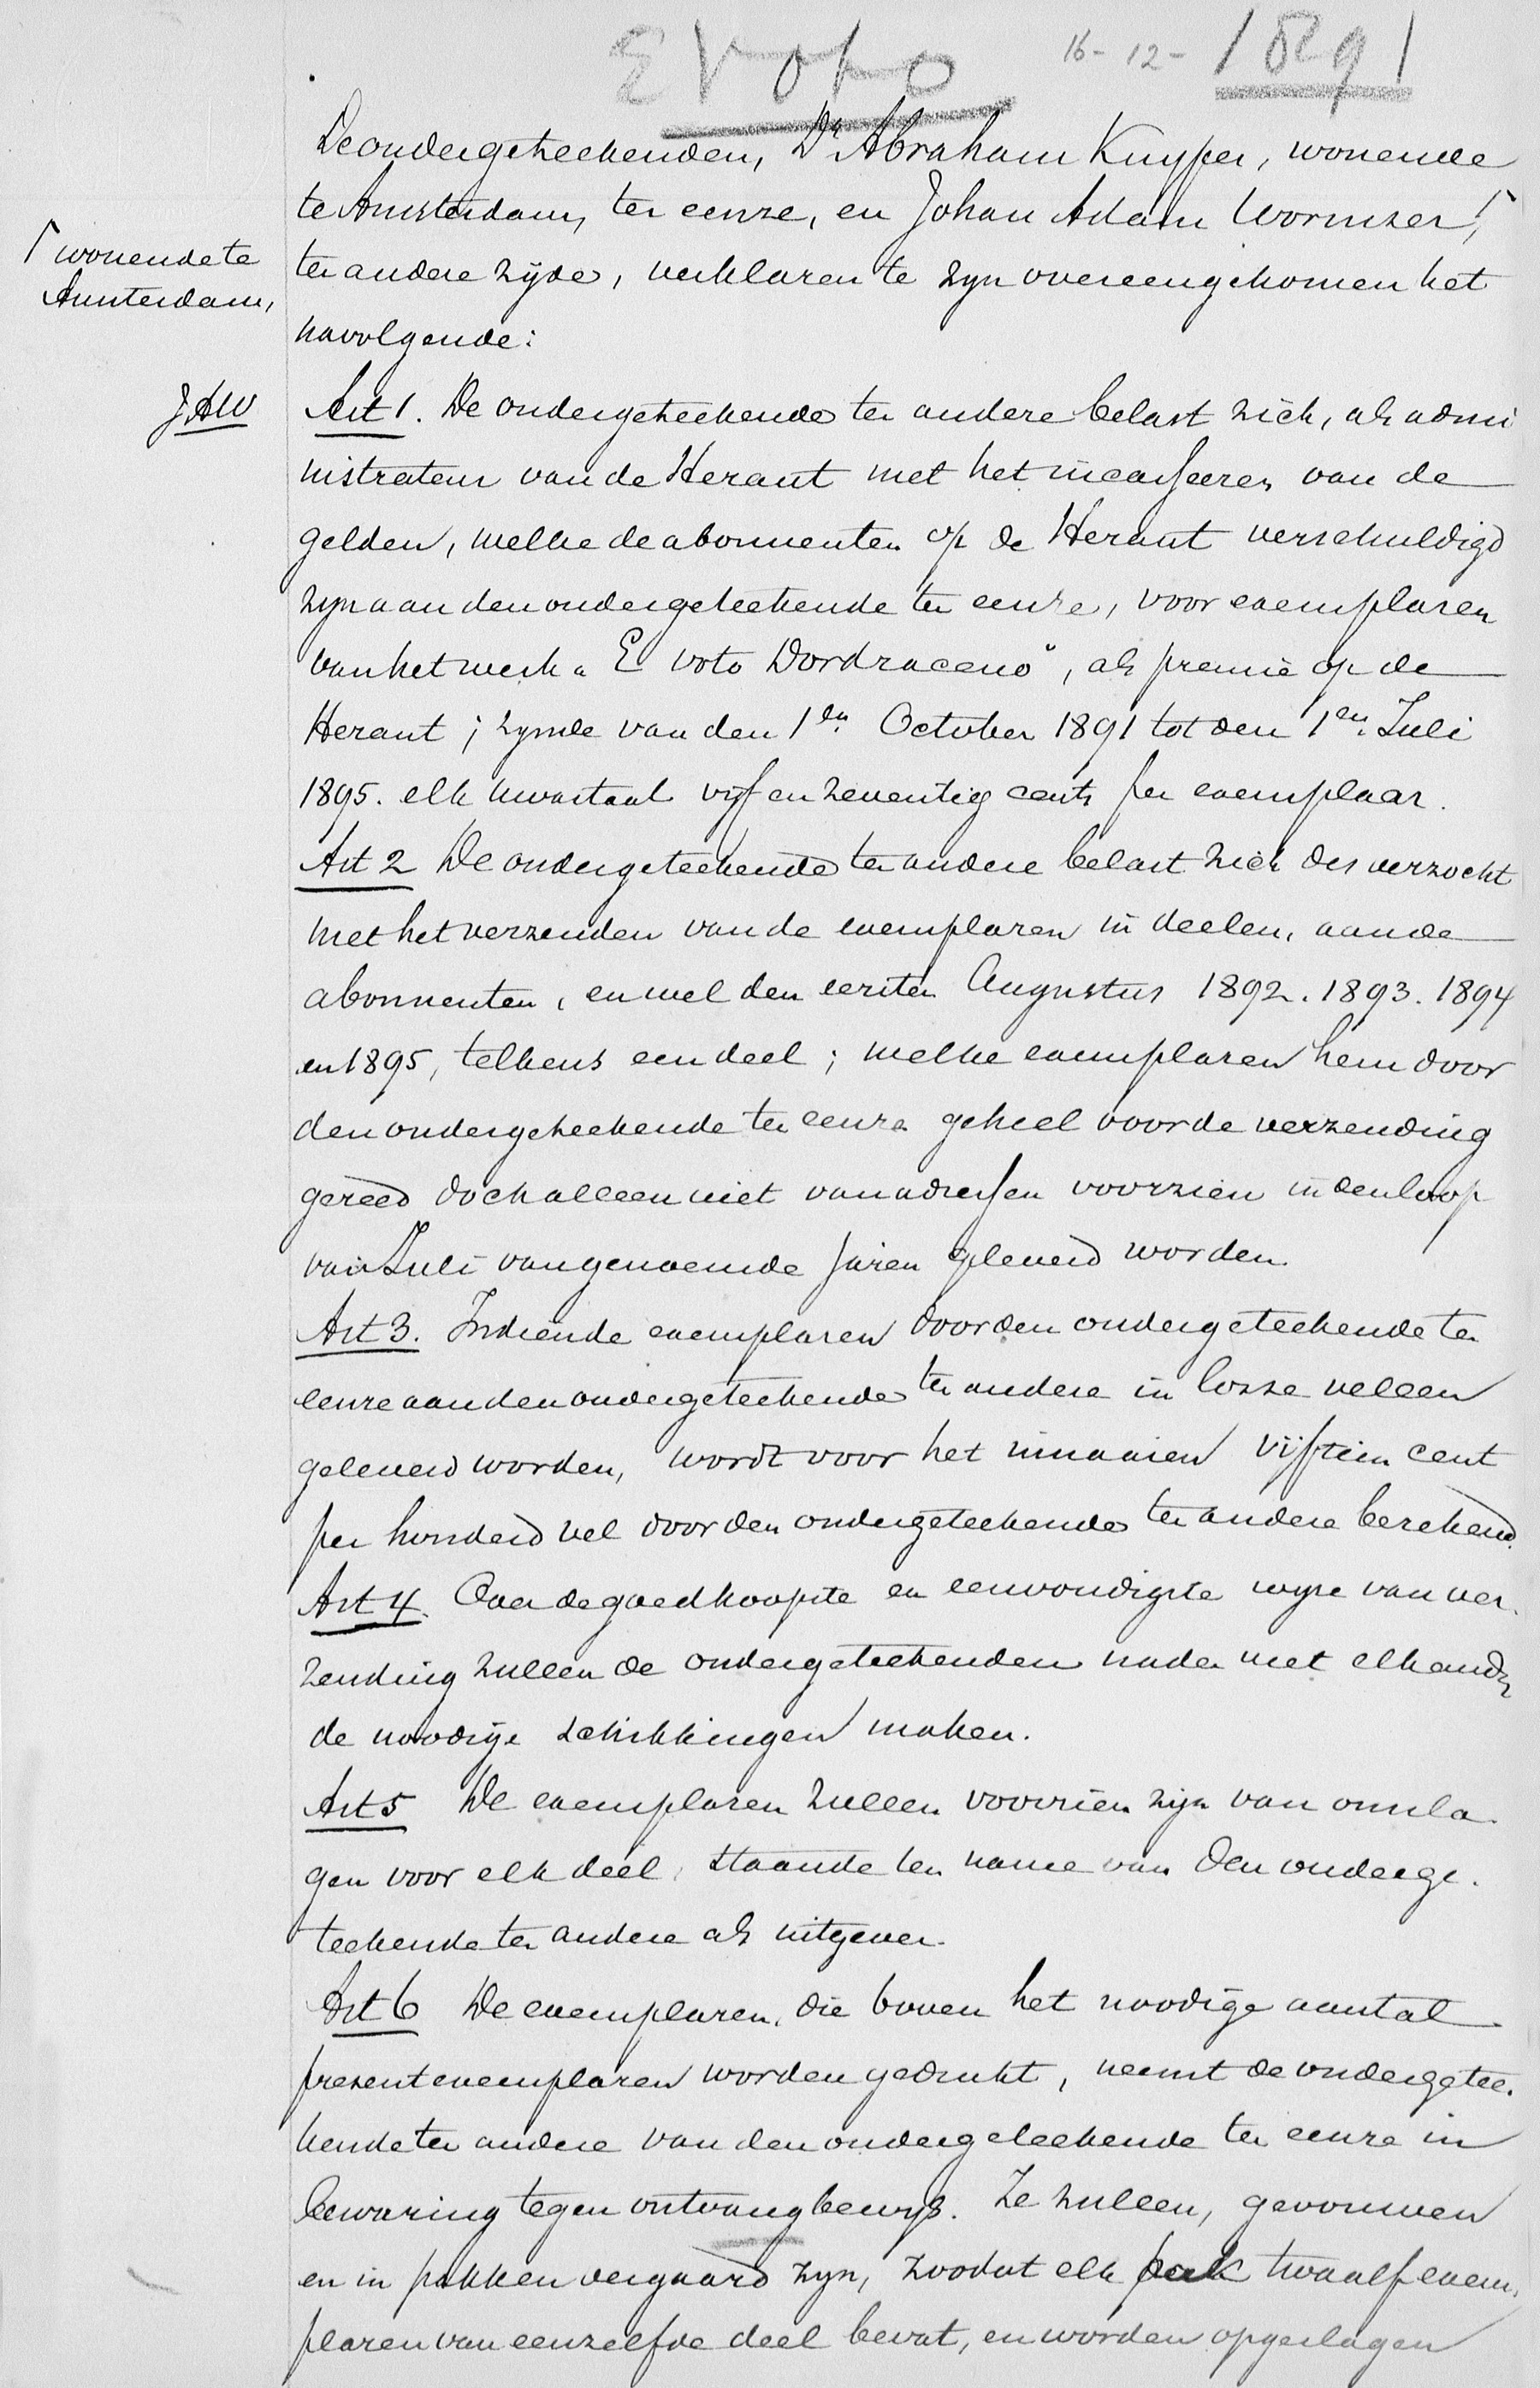 E Voto 16-12-1891
De ondergeteekenden, Dr Abraham Kuyper, wonende
te Amsterdam, ter eenre, en Johan Adam Wormser, Γ
Γ wonende te
Amsterdam,
ter andere zijde, verklaren te zyn overeengekomen het
navolgende:
JAW
Art 1. De ondergeteekende ter andere belast zich, als admi
nistrateur van de Heraut met het incasseeren van de
gelden, welke de abonnenten op de Heraut verschuldigd
zyn aan den ondergeteekende ter eenre, voor exemplaren
van het werk "E voto Dordraceno", als premie op de
Heraut; zynde van den 1en October 1891 tot den 1en Juli
1895. elk kwartaal vyf en zeventig cents per exemplaar.
Art 2 De ondergeteekende ter andere belast zich des verzocht
met het verzenden van de exemplaren in deelen, aan de
abonnenten, en wel den eersten Augustus 1892. 1893. 1894
en 1895, telkens een deel; welke exemplaren hem door
den ondergeteekende ter eenre geheel voor de verzending
gereed doch alleen niet van adressen voorzien in den loop
van Juli van genoemde jaren geleverd worden.
Art 3. Indien de exemplaren door den ondergeteekende ter
eenre aan den ondergeteekende ter andere in losse vellen
geleverd worden, wordt voor het innaaien vijftien cent
per honderd vel door den ondergeteekende ter andere berekend.
Art 4. Over de goedkoopste en eenvoudigste wyze van ver-
zending zullen de ondergeteekenden nader met elkander
de noodige schikkingen maken.
Art 5 De exemplaren zullen voorzien zijn van omsla-
gen voor elk deel, staande ten name van den onderge-
teekende ter andere als uitgever.
Art 6 De exemplaren, die boven het noodige aantal
presentexemplaren worden gedrukt, neemt de ondergetee-
kende ter andere van den ondergeteekende ter eenre in
bewaring tegen ontvangbewys. Ze zullen, gevouwen
en in pakken vergaard zyn, zoodat elk pak twaalf exem-
plaren van eenzelfde deel bevat, en worden opgeslagen